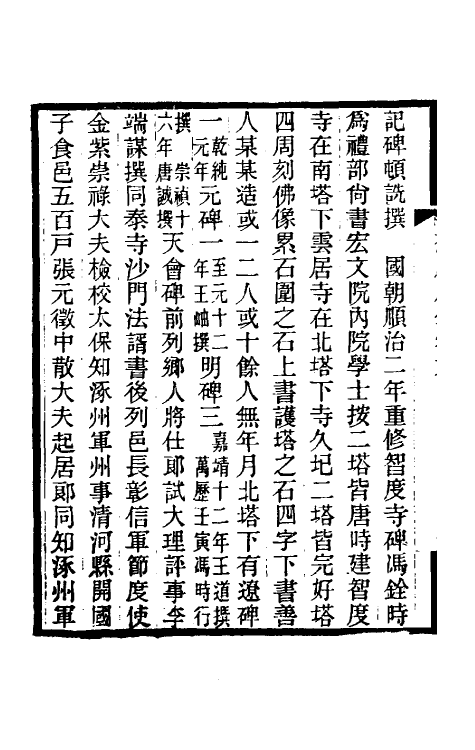 記碑頓詵撰　國朝順治二年重修智度寺碑馮銓時
爲禮部尙書宏文院內院學士按二塔皆唐時建智度
寺在南塔下雲居寺在北塔下寺久圮二塔皆完好塔
四周刻佛像累石圍之石上書護塔之石四字下書善
人某某造或一二人或十餘人無年月北塔下有遼碑
一乾統元年元碑一至元十二年王岫撰明碑三嘉靖十二年王道撰萬歷壬寅馮時行
撰崇禎十六年唐誠撰天會碑前列鄉人將仕郞試大理評事李
端謀撰同泰寺沙門法諝書後列邑長彰信軍節度使
金紫崇祿大夫檢校太保知涿州軍州事清河縣開國
子食邑五百戸張元徵中散大夫起居郞同知涿州軍